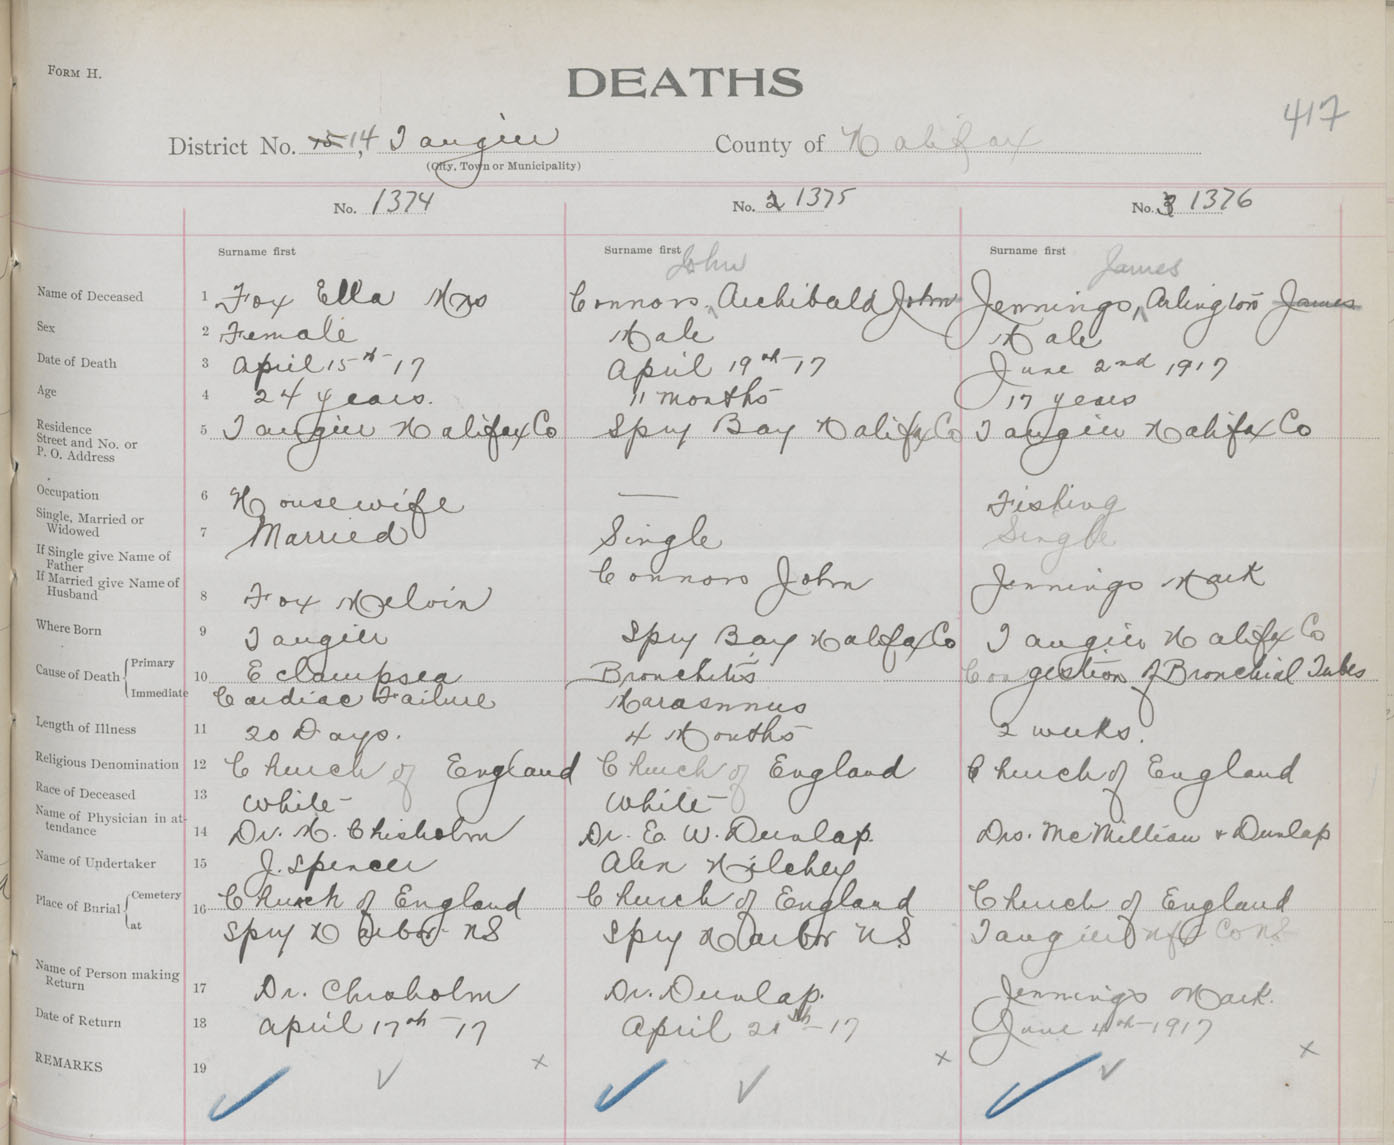 FORM H.
DEATHS
417
District No. 15 14, Tangier County of Halifax
(City, Town or Municipality)
No. 1374 No. 2 1375 No. 3 1376
Surname first Surname first Surname first
John James
Name of Deceased 1 Fox Ella Mrs Connors, Archibald John Jennings, Arlington James
Sex 2 Female Male Male
Date of Death 3 April 15th-17 April 19th-17 June 2nd 1917
Age 4 24 years. 11 months 17 years
Residence Street and No. or P. O. Address 5 Tangier Halifax Co Spry Bay Halifax Co Tangier Halifax Co
Occupation 6 Housewife — Fishing
Single, Married or Widowed 7 Married Single Single
If Single give Name of Father
If Married give Name of Husband 8 Fox Melvin Connors John Jennings Mark
Where Born 9 Tangier Spry Bay Halifax Co Tangier Halifax Co
Cause of Death { Primary 10 Eclampsea Bronchitis Congestion of Bronchial Tubes
Immediate Cardiac Failure Marasmus
Length of Illness 11 20 Days. 4 Months 2 weeks.
Religious Denomination 12 Church of England Church of England Church of England
Race of Deceased 13 White White
Name of Physician in attendance 14 Dr. H. Chisholm Dr. E. W. Dunlap. Drs. McMillian + Dunlap
Name of Undertaker 15 J. Spencer Alen Hilchey
Place of Burial { Cemetery 16 Church of England Church of England Church of England
at Spry Harbor NS Spry Harbor N.S. Tangier Hfx Co NS
Name of Person making Return 17 Dr. Chisholm Dr. Dunlap. Jennings Mark.
Date of Return 18 April 17th-17 April 21th-17 June 4th-1917
REMARKS 19